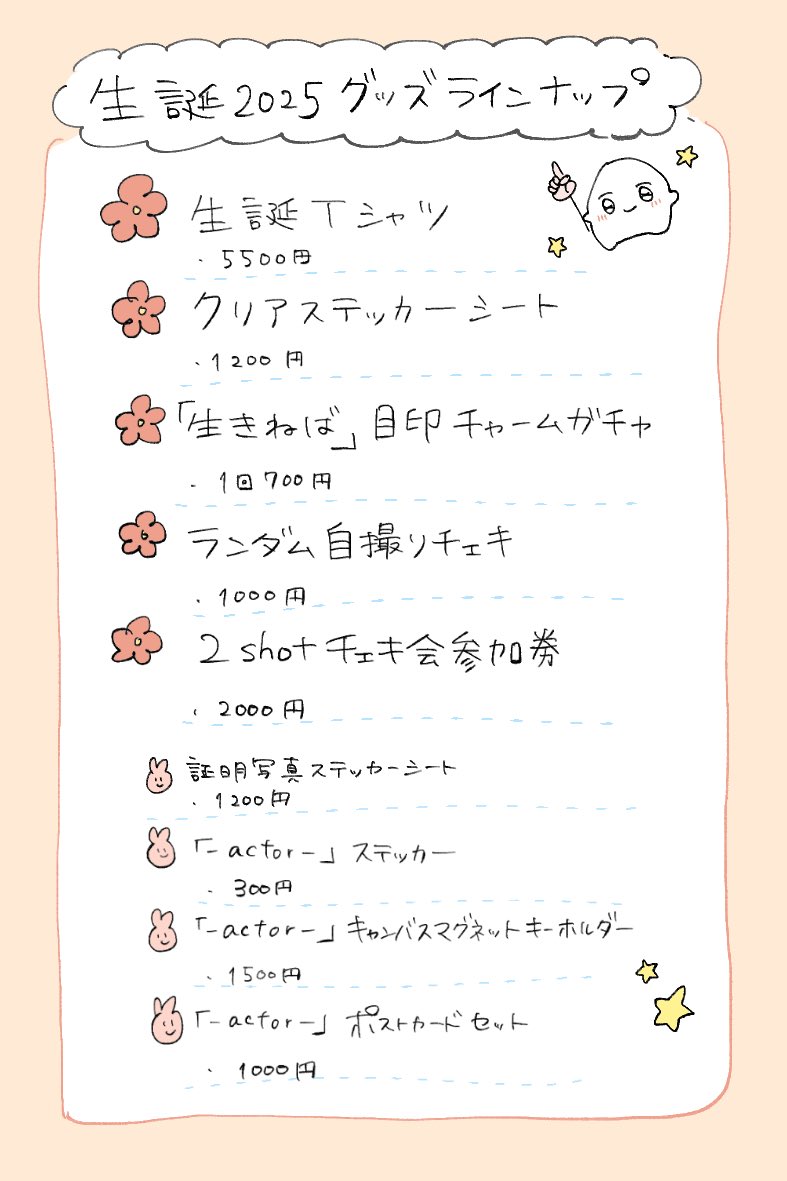 生誕2025グッズラインナップ
生誕Tシャツ
・5500円
クリアステッカーシート
・1200円
「生きねば」目印チャームガチャ
・1回700円
ランダム自撮りチェキ
・1000円
2shotチェキ会参加券
・2000円
証明写真ステッカーシート
・1200円
「-actor-」ステッカー
・300円
「-actor-」キャンバスマグネットキーホルダー
・1500円
「-actor-」ポストカードセット
・1000円